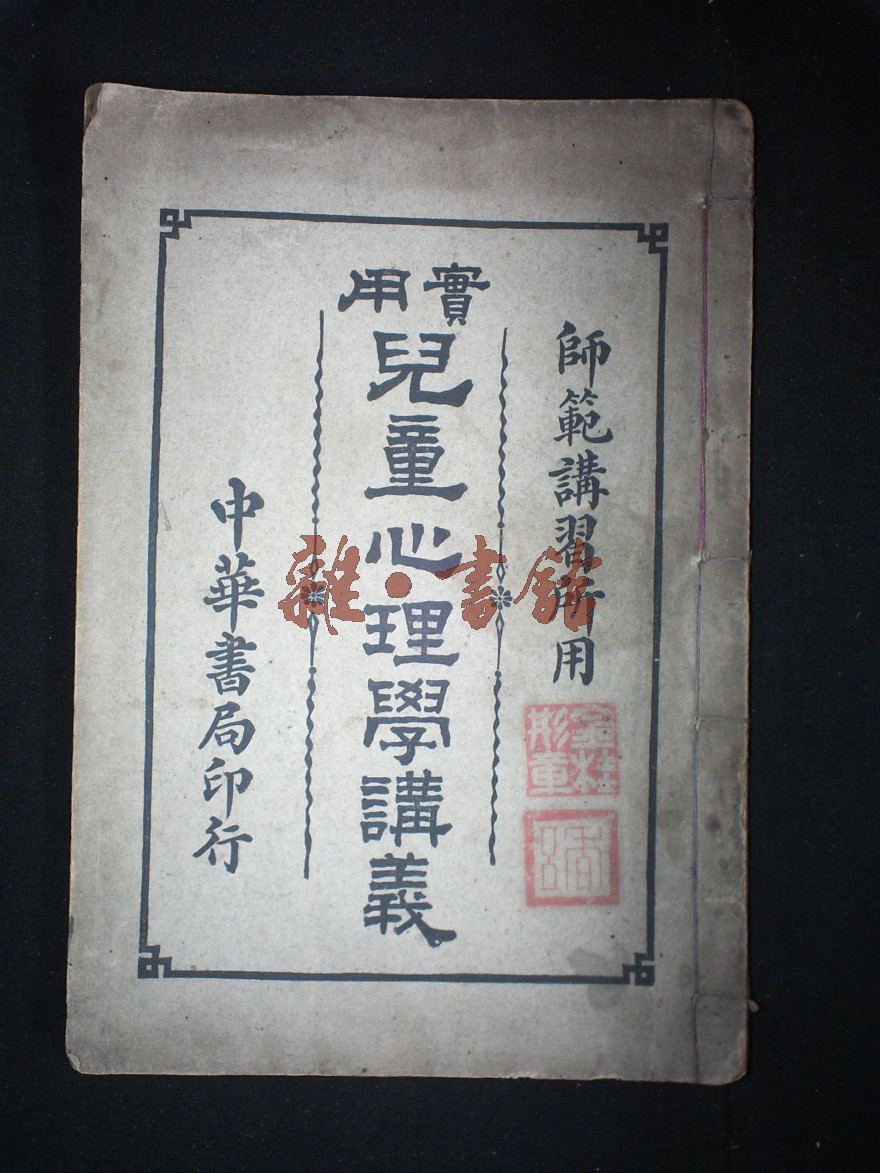 師範講習所用
實用
兒童心理學講義
中華書局印行
雜·書館